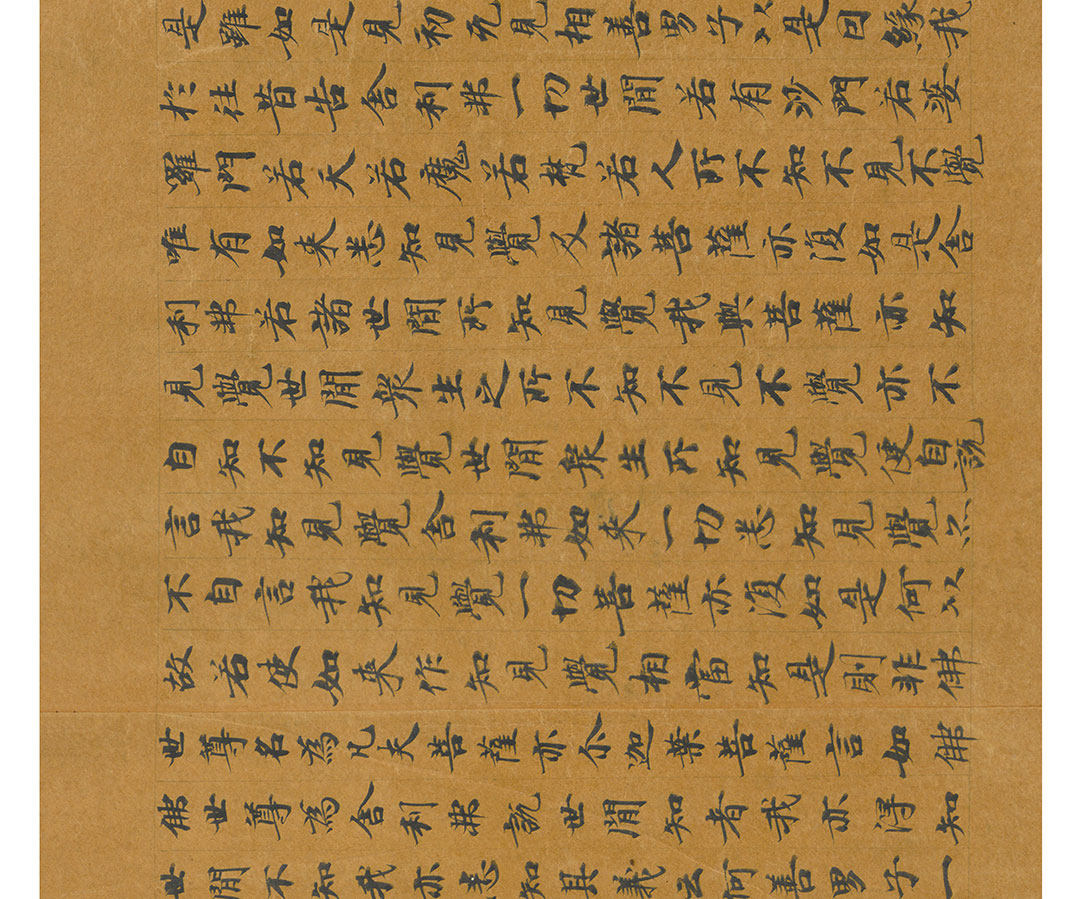 是雖如是見初无見相善男子以是因緣我
於往昔告舍利弗一切世間若有沙門若婆
羅門若天若魔若梵若人所不知不見不覺
唯有如来悉知見覺及諸菩薩亦復如是舍
利弗若諸世間所知見覺我與菩薩亦知
見覺世間衆生之所不知不見不覺亦不
自知不知見覺世間衆生所知見覺便自説
言我知見覺舍利弗如来一切悉知見覺亦
不自言我知見覺一切菩薩亦復如是何以
故若使如来作知見覺相當知是則非佛
世尊名為凡夫菩薩亦尒迦葉菩薩言如佛
佛世尊為舍利弗説世間知者我亦得知
世間不知我亦悉知其義云何善男子一